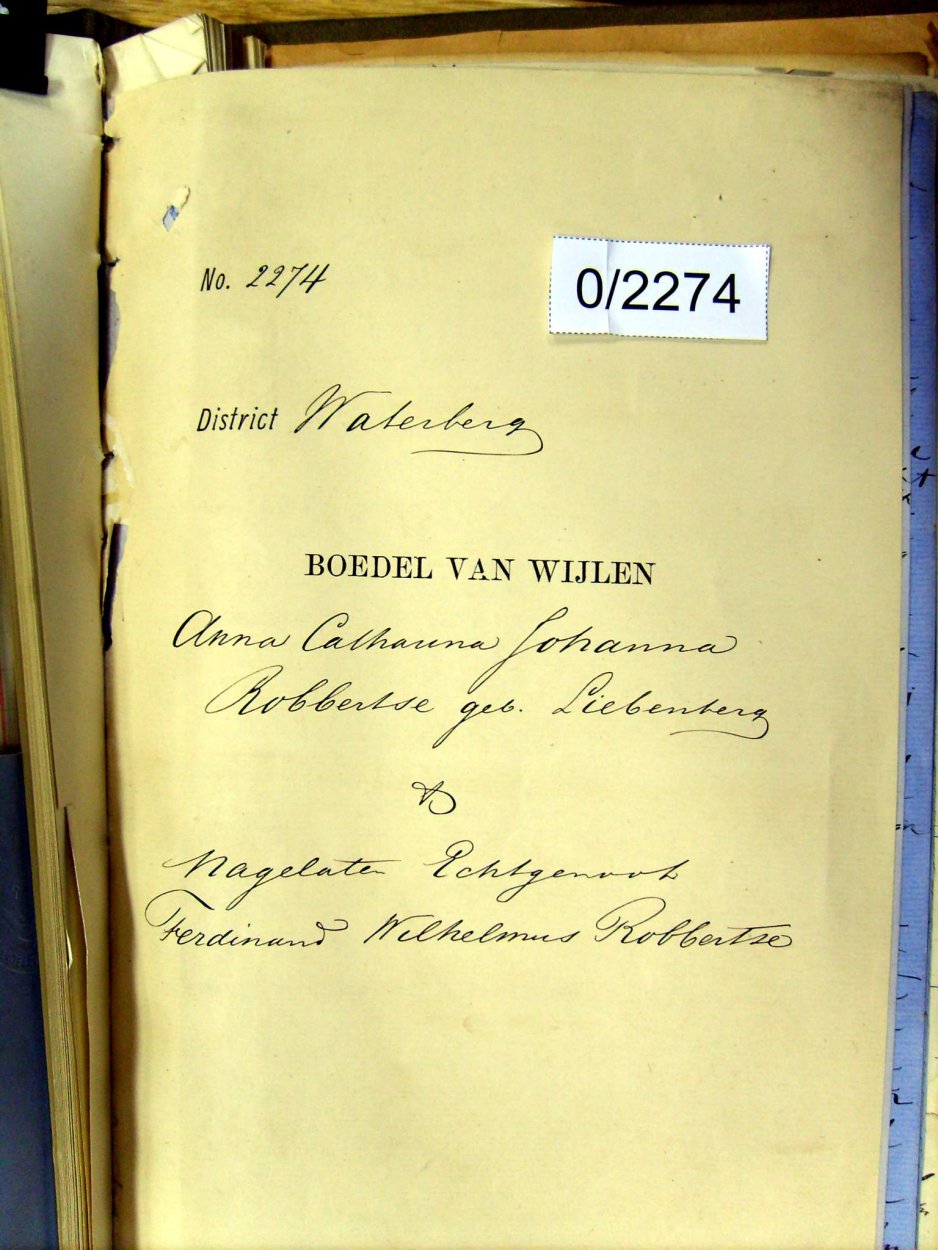 No. 2274
0/2274
District Waterberg
BOEDEL VAN WIJLEN
Anna Catharina Johanna
Robbertse geb. Liebenberg
&
Nagelaten Echtgenoot
Ferdinand Wilhelmus Robbertse